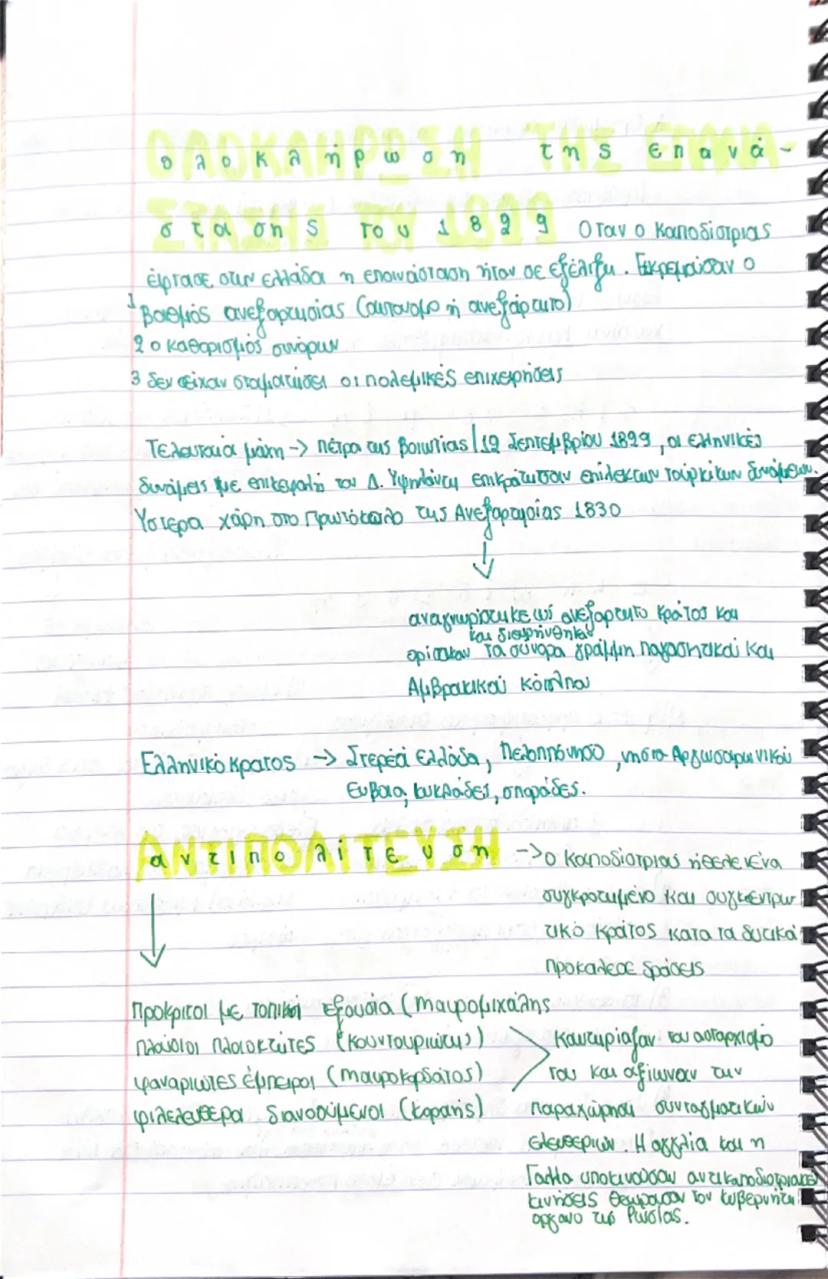 ολοκλήρωση της επανά-
στασης του 1829 Οταν ο Καποδίστριας
έφτασε στην ελλάδα η επανάσταση ήταν σε εξέλιξη. Εκκρεμούσαν ο
1 βαθμός ανεξαρτησίας (αυτονομο ή ανεξάρτητο)
2 ο καθαρισμός συνόρων
3 δεν είχαν σταματήσει οι πολεμικές επιχειρήσεις
Τελευταία μάχη → πέτρα της βοιωτίας | 12 Σεπτεμβρίου 1829, οι ελληνικές
δυνάμεις με επικεφαλή τον Δ. Υψηλάντη επικράτησαν επίλεκτων τούρκικων δυνάμεων.
Υστερα χάρη στο Πρωτόκολο της Ανεξαρτησίας 1830
αναγνωρίστηκε ως ανεξαρτητο κράτος και
και διευρήνθηκαν
ορίστηκαν τα σύνορα γράμμη παγασητικού και
Αμβρακικού κόπλου
Ελληνικό κρατος → Στερεά ελλάδα, πελοπόννησο, νησια Αργωσαρωνικού
ευβοια, κυκλάδες, σποράδες.
αντιπολίτευση → ο καποδίστριας ήθελε ένα
συγκροτημένο και συγκεντρω
τικό κράτος κατα τα δυτικά
προκάλεσε δράσεις
Πρόκριτοι με τοπική εξουσία (μαυρομιχάλης
πλούσιοι πλοιοκτήτες (κουντουριώτης)
φαναριώτες έμπειροι (μαυροκορδάτος)
φιλελευθερα διανοούμενοι (κοραής)
καυτηρίαζαν τον αυταρχισμό
του και αξίωναν την
παραχώρηση συνταγματικών
ελευθεριών. Η αγγλία και η
Γαλλία υποκινούσαν αντικαποδιστριακές
κινήσεις θεωρησαν τον κυβερνήτη
οργανο της Ρωσίας.